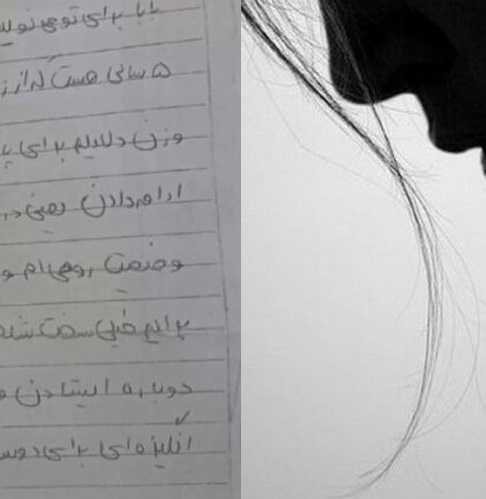 بابا برای تو می نویس
۵ سالی هست که از ز
وزن دلایلم برای پا
ادامه دادن یعنی در
وضعیت روحی ام و
برایم خیلی سخت شد
دوباره ایستادن و
انگیزه ای برای دوس